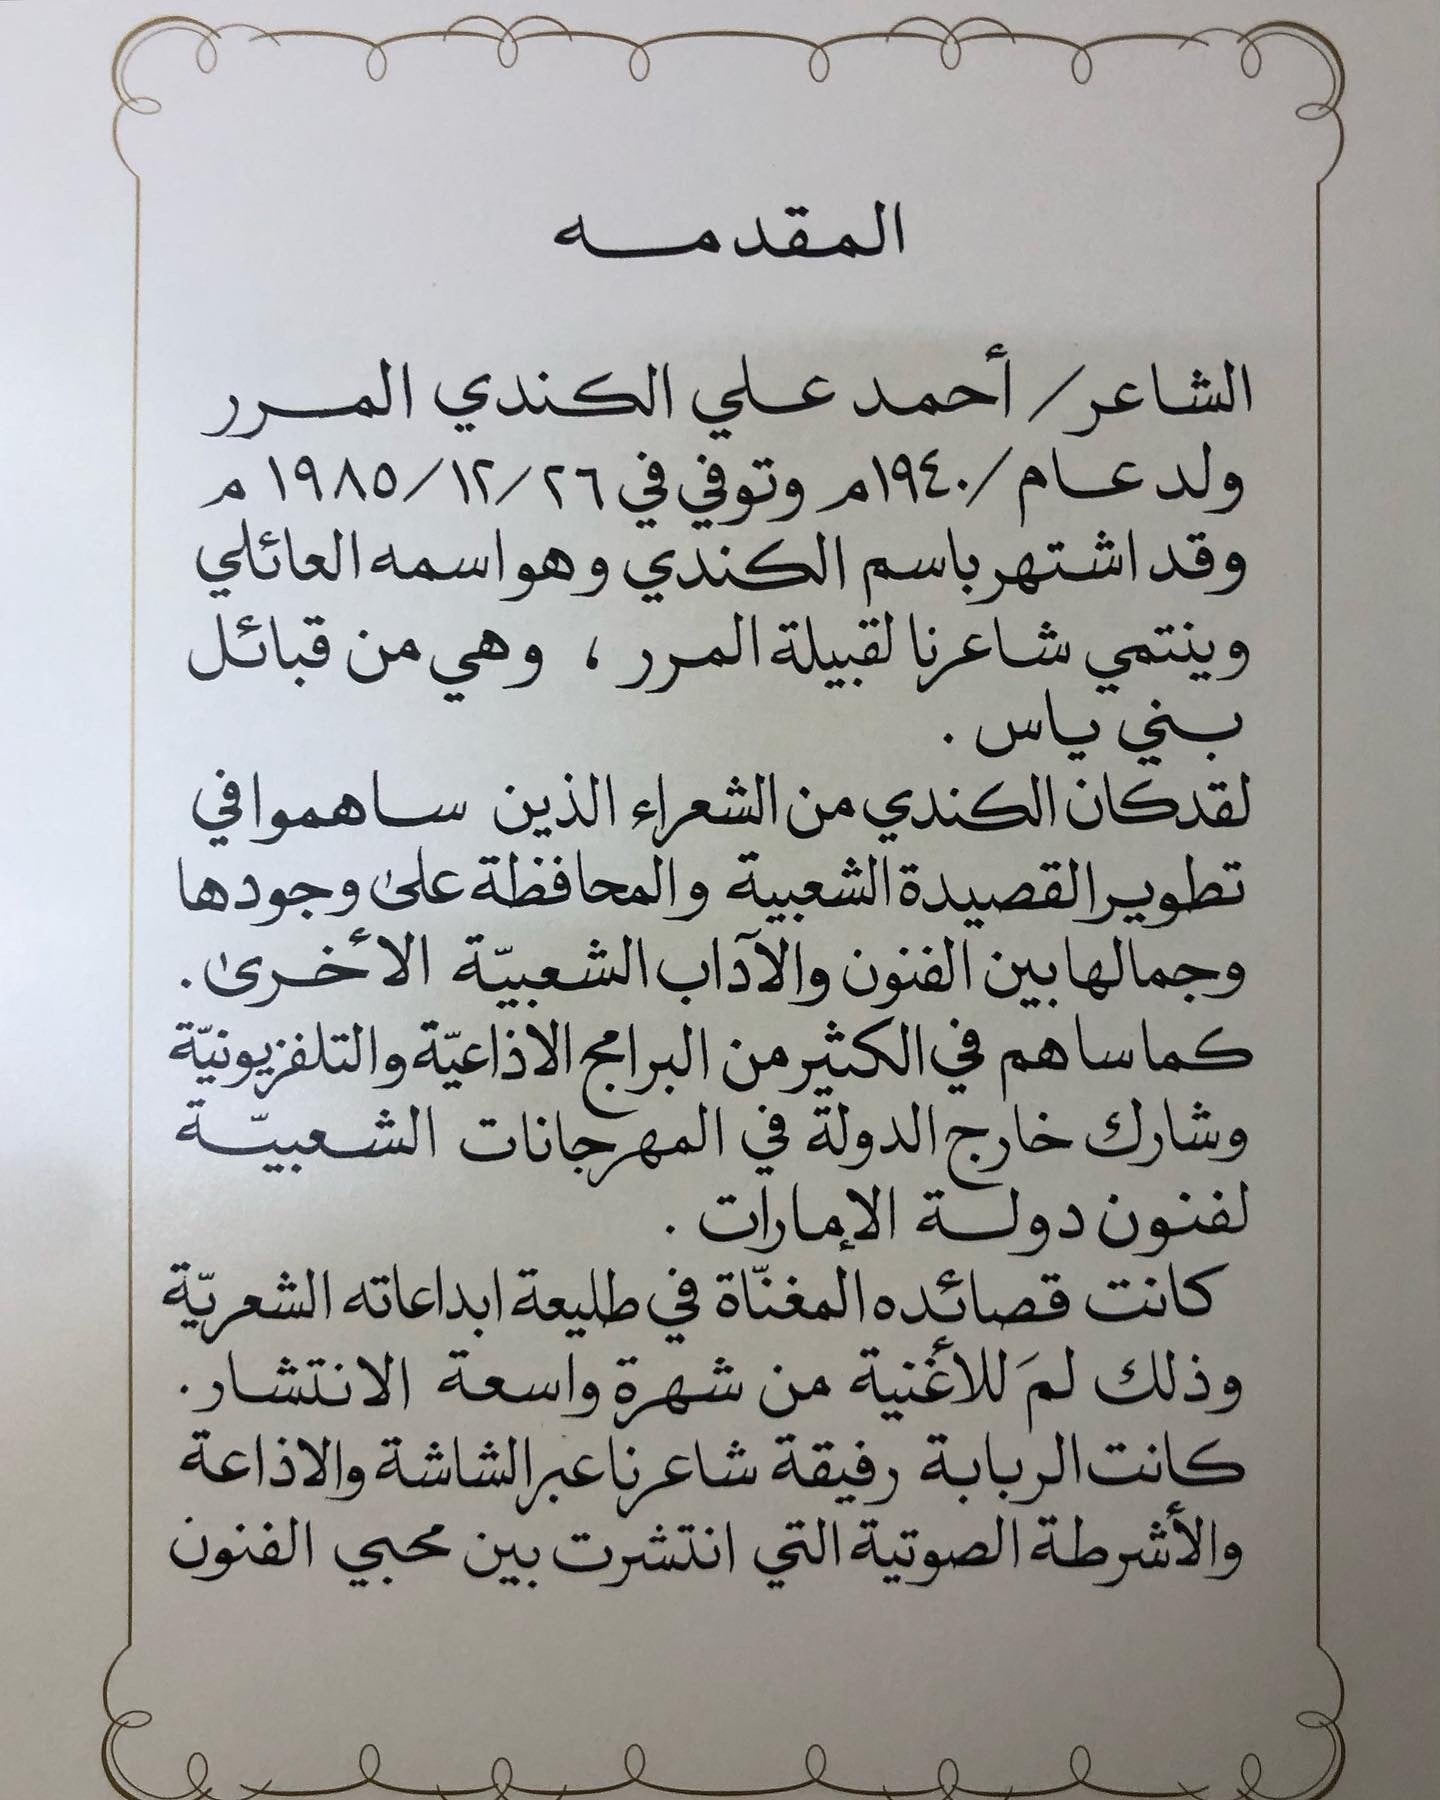 المقدمه
الشاعر/ أحمد علي الكندي المرر
ولد عام /١٩٤٠م وتوفي في ٢٦/١٢/١٩٨٥ م
وقد اشتهر باسم الكندي وهو اسمه العائلي
وينتمي شاعرنا لقبيلة المرر ، وهي من قبائل
بني ياس .
لقد كان الكندي من الشعراء الذين ساهموا في
تطوير القصيدة الشعبية والمحافظة على وجودها
وجمالها بين الفنون والآداب الشعبيّة الأخرى .
كما ساهم في الكثير من البرامج الاذاعيّة والتلفزيونيّة
وشارك خارج الدولة في المهرجانات الشعبيّة
لفنون دولة الإمارات .
كانت قصائده المغنّاة في طليعة ابداعاته الشعريّة
وذلك لمَ للأغنية من شهرة واسعة الانتشار .
كانت الربابة رفيقة شاعرنا عبر الشاشة والاذاعة
والأشرطة الصوتية التي انتشرت بين محبي الفنون